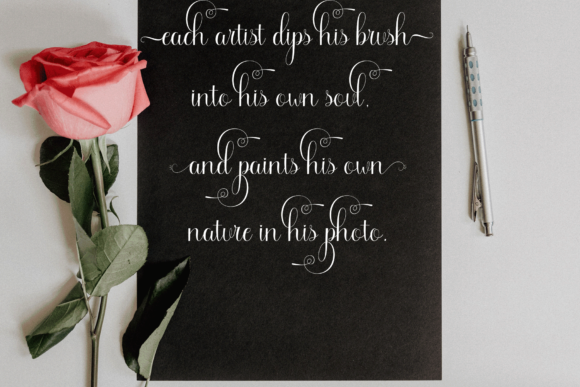 each artist dips his brush
into his own soul.
and paints his own
nature in his photo.